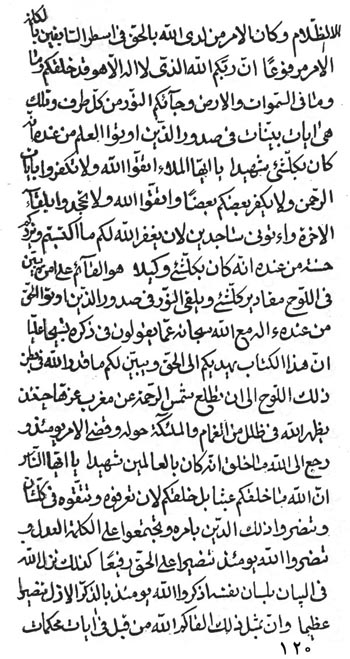 الا الظلام وكان الامر من لدى الله بالحق فى اسطر التابين بالكلمة
الامر مرفوعًا ان ربكم الله الذى لا اله الا هو قد خلقكم وما
وما فى السموات والارض وجائكم النور من كل طرف وتلك
هى ايات بينات فى صدور الذين اوتوا العلم من عنده انه
كان بكلشئ شهيدا يا ايها الملاء اتقوا الله ولا تكفروا بايات
الرحمن ولا يكفر بعضكم بعضًا واتقوا الله ولا تجحدوا بلقاء
الاخرة واتونى ساجدين لان يغفر الله لكم ما اكتسبتم ويزدكم
حسنة من عنده انه كان بكلشئ وكيلا هو القائم على امره يبين
فى اللوح مقادير كلشئ ويلقى النور فى صدور الذين اوتوا الحق
من عنده ءاله مع الله سبحانه عما يقولون فى ذكره تسبيحا عليا
ان هذا الكتاب يهديكم الى الحق ويبين لكم ما قدر الله فى
ذلك اللوح الى ان تطلع شمس الرحمة عن مغرب عزها حينئذ
يظهر الله فى ظلل من الغمام والملئكة حوله وقضى الامر يومئذ و
رجع الى الله ما خلق انه كان بالعالمين شهيدا يا ايها الناس
ان الله ما خلقكم عبثا بل خلقكم لان تعرفوه وتتقوه فى كلشان
وتنصروا ذلك الدين بامره وتجتمعوا على الكلمة العدل و
تنصروا الله يومئذ نصيرا على الحق رفيعًا كذلك نزل الله
فى البيان بلسان نفسه اذكروا الله يومئذ بالذكر الاول نصيرا
عظيما وان بمثل ذلك القاكم الله من قبل فى ايات محكمات
١٢٠